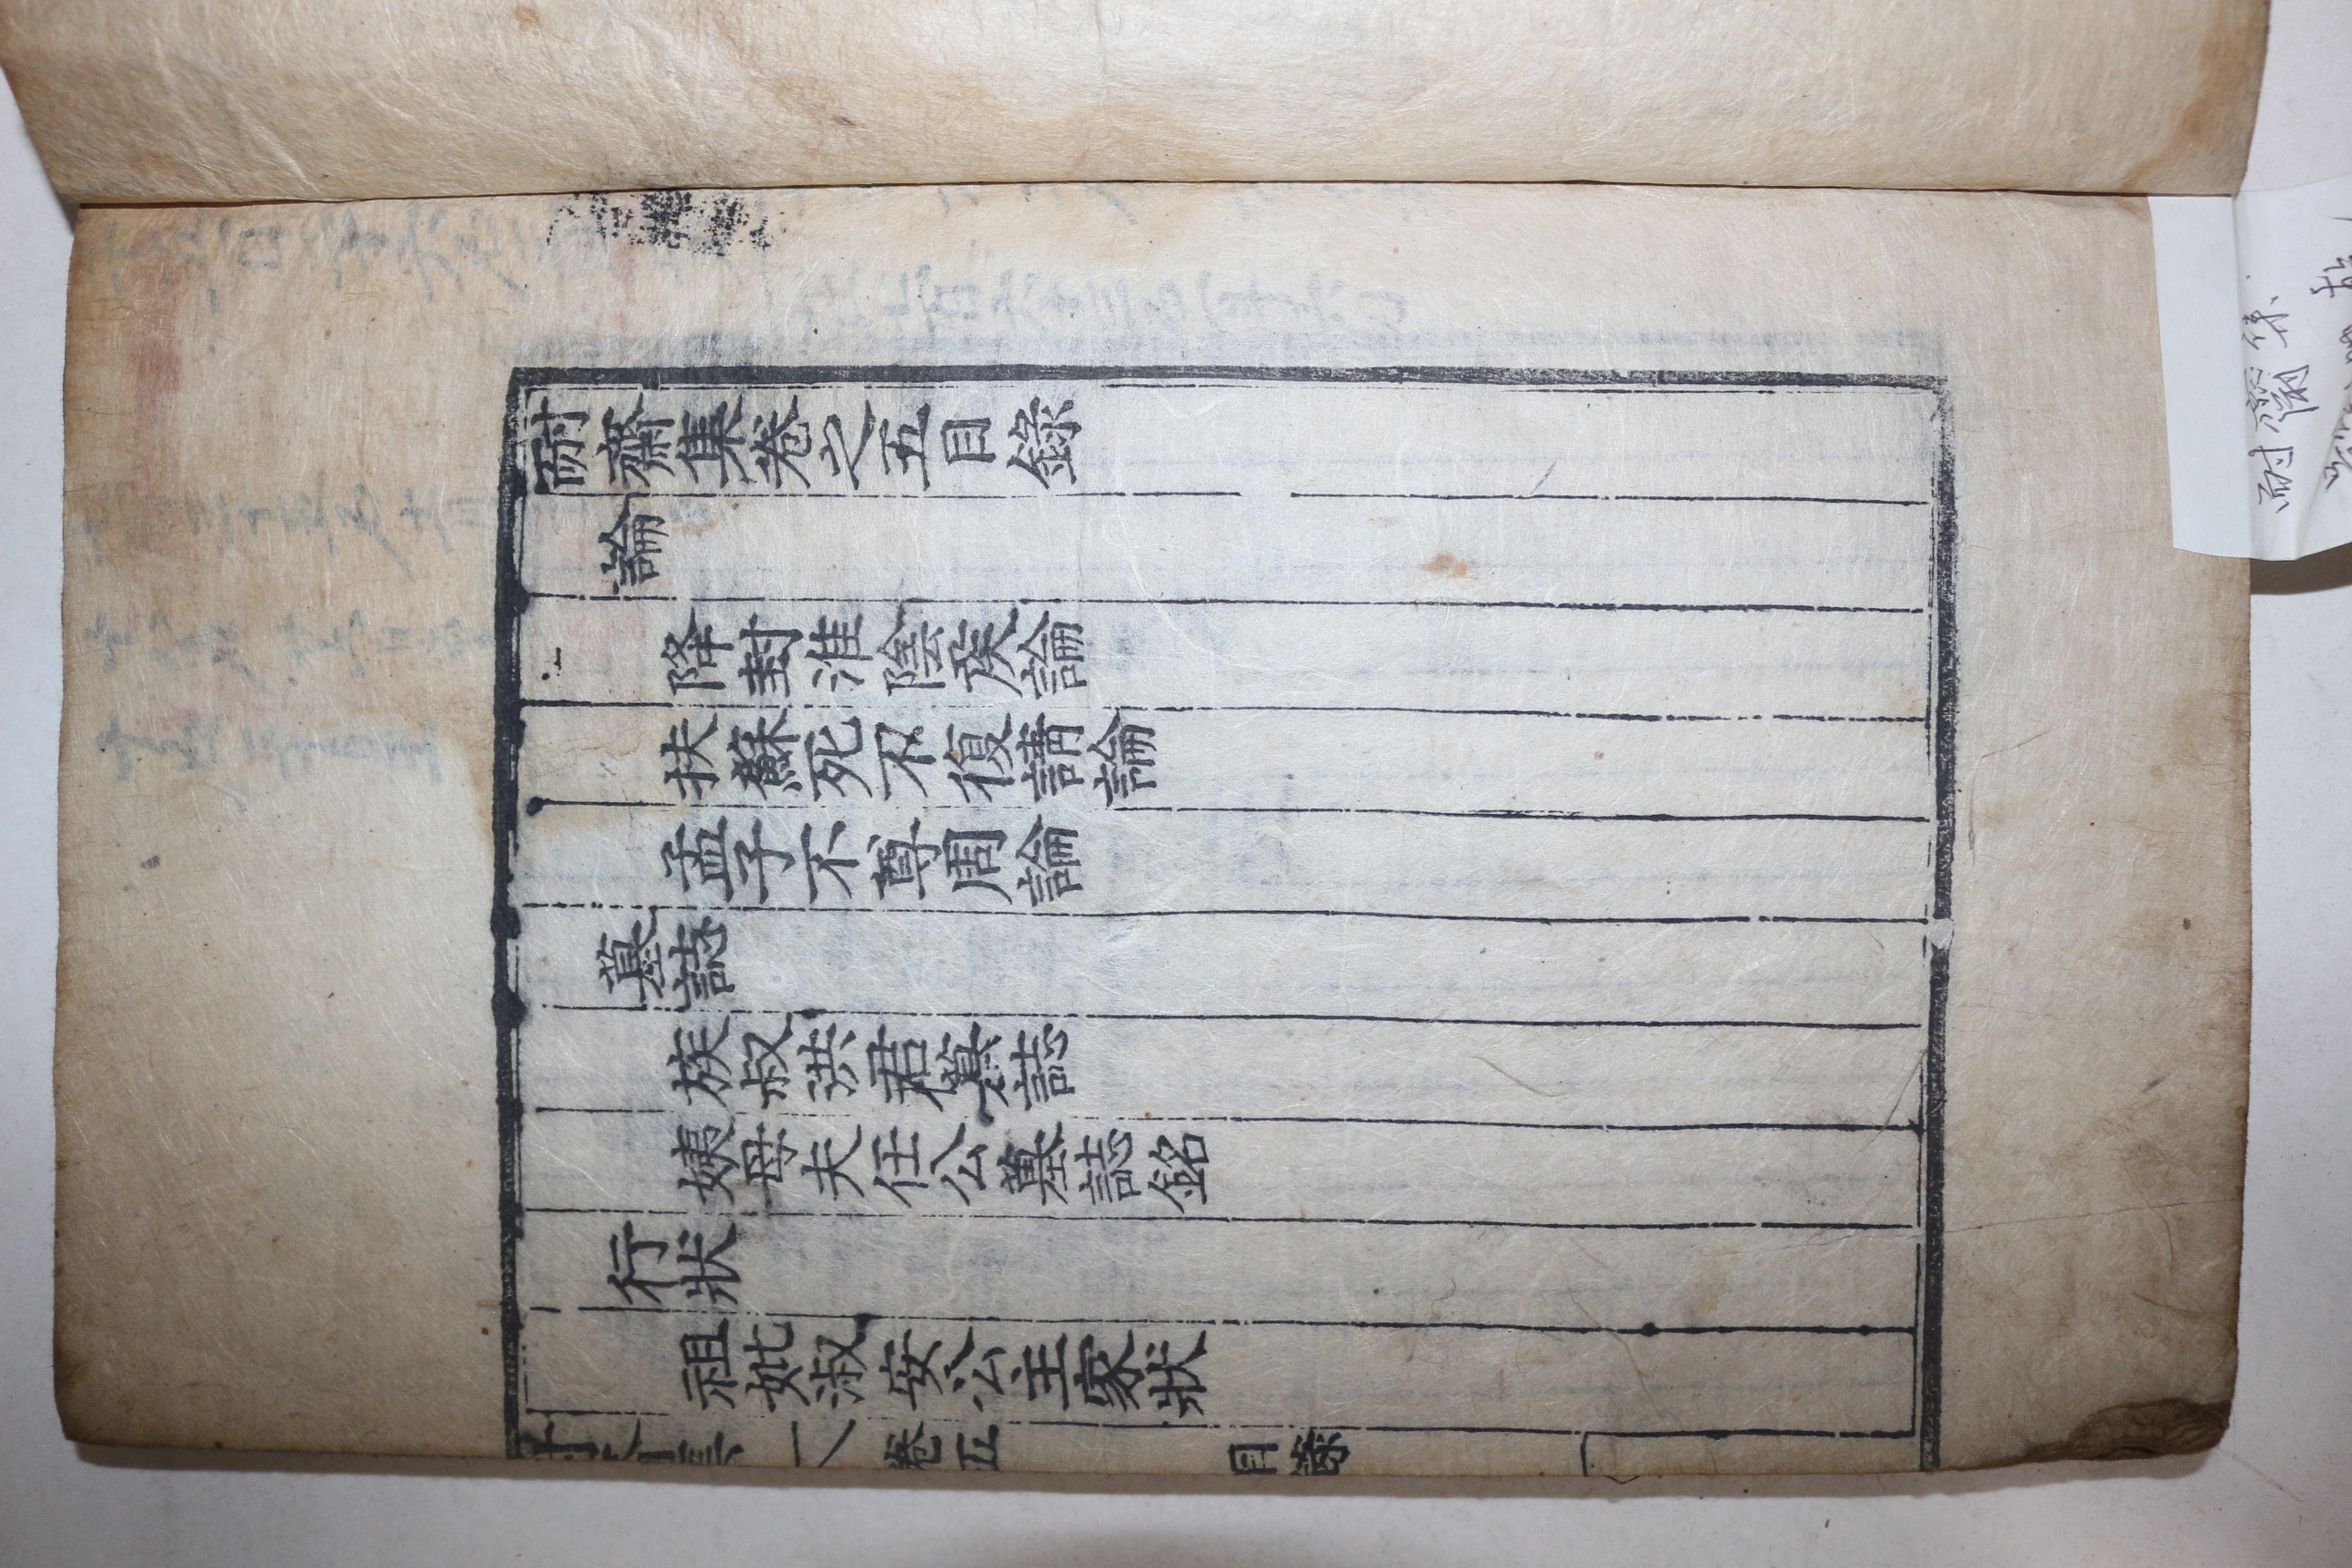 耐齋集卷之五目錄
論
降封淮陰侯論
扶蘇死不復請論
孟子不尊周論
墓誌
族叔洪君墓誌
姨母夫任公墓誌銘
行狀
祖妣淑安公主家狀
卷五 目錄